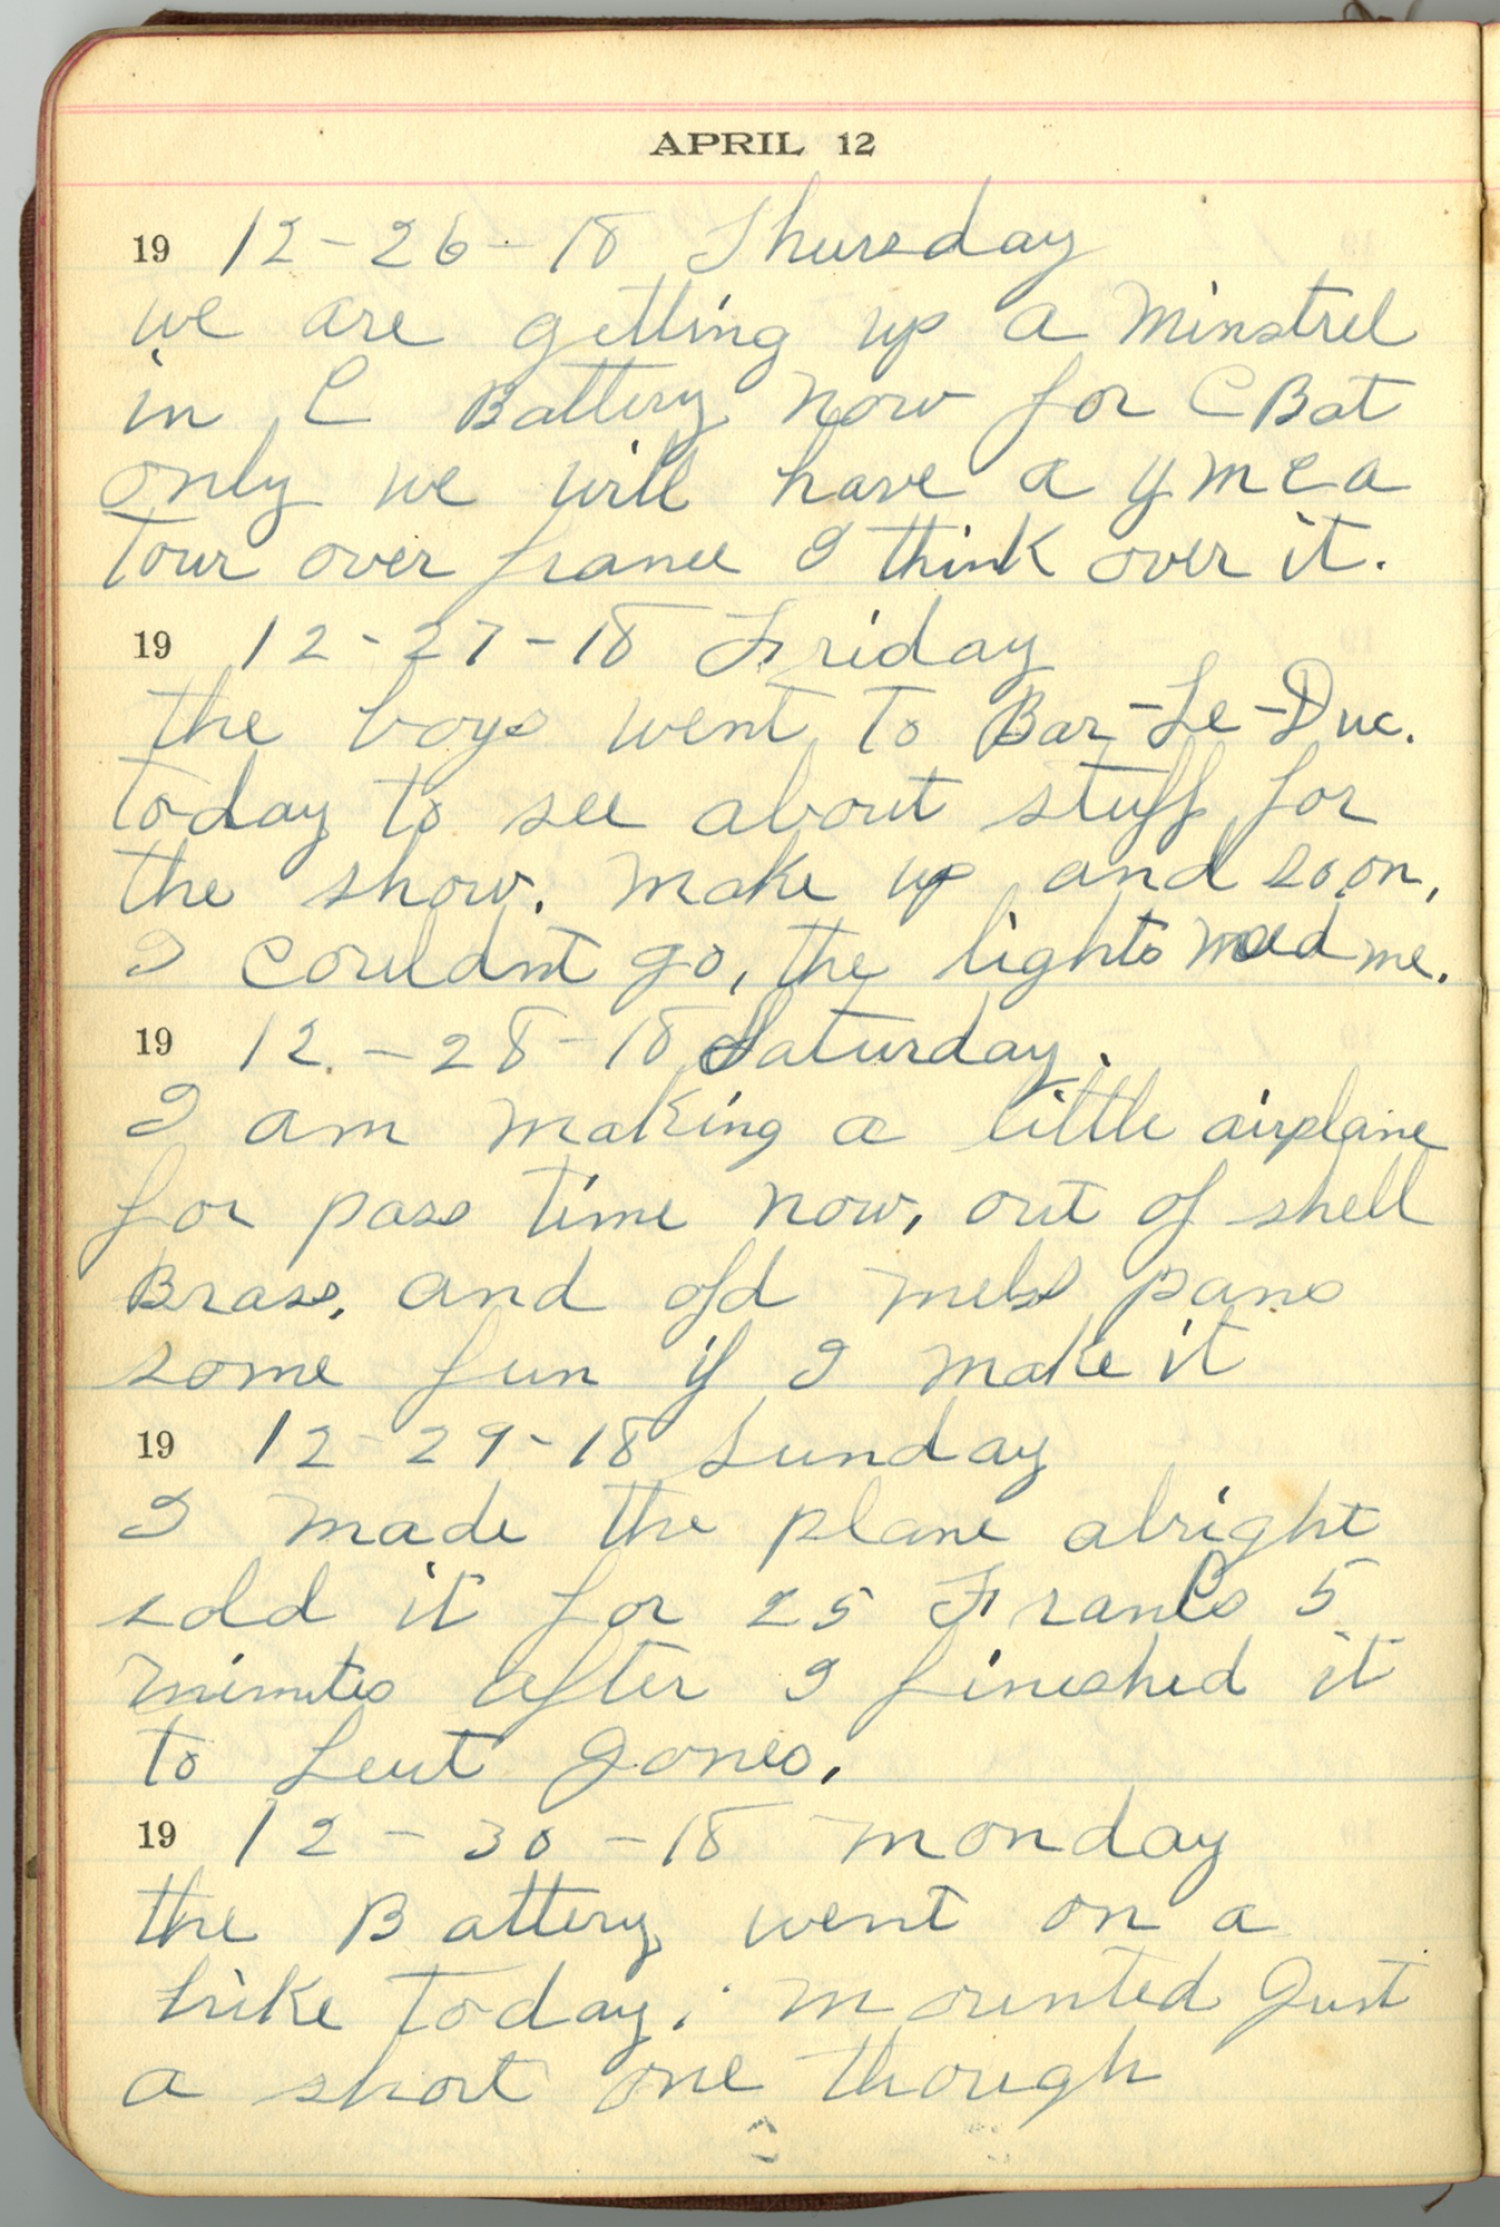 APRIL 12
19 12-26-18 Thursday
we are getting up a minstrel
in C Battery now for C Bat
only we will have a ymca
Tour over france I think over it.
19 12-27-18 Friday
the boys went to Bar-Le-Duc.
today to see about stuff for
the show. make up and so on,
I couldnt go, the lights me.
19 12-28-18 Saturday.
I am making a little airplane
for pass time now, out of shell
Brass, and old mess pans
some fun if I make it
19 12-29-18 Sunday
I made the plane alright
sold it for 25 Francs 5
minutes after I finished it
to Leut Jones.
19 12-30-18 monday
the Battery went on a
hike today. mounted Just
a short one though